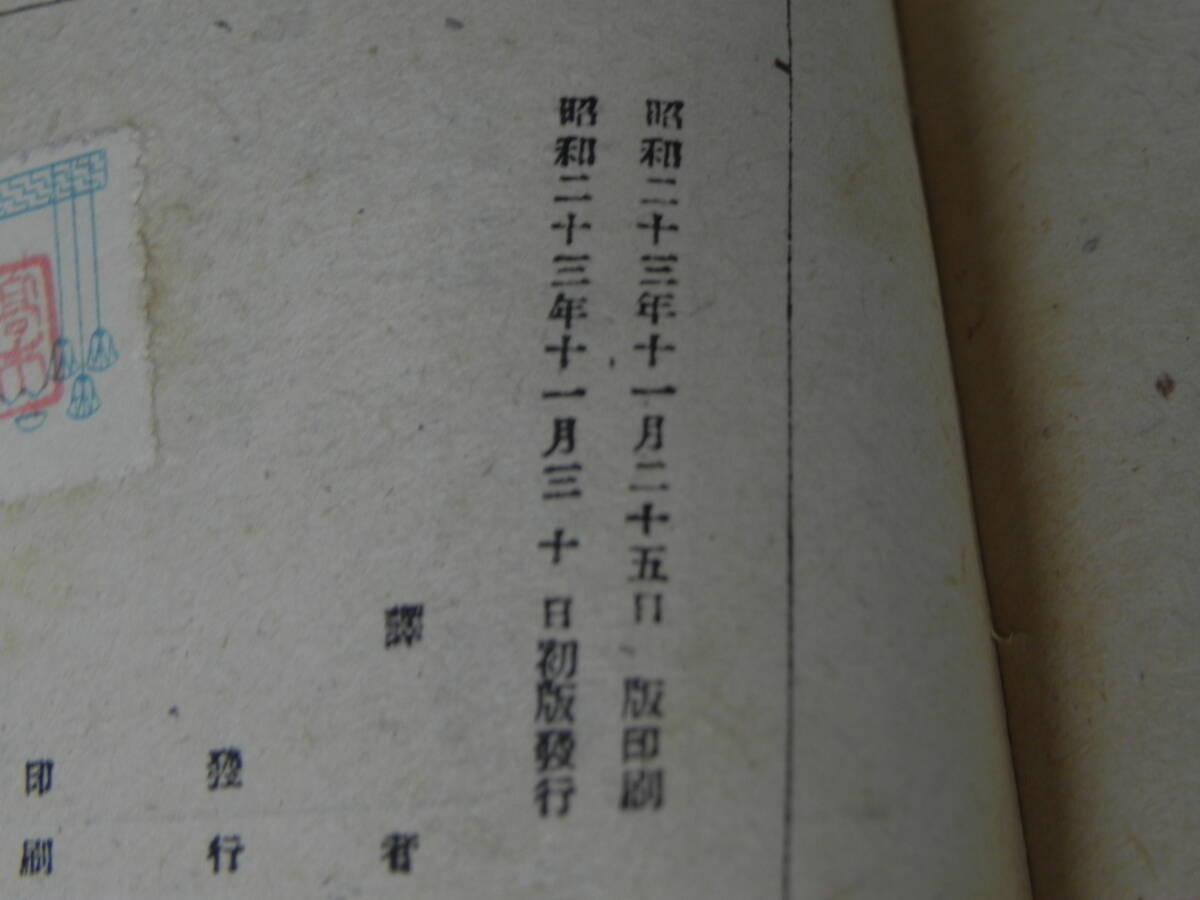 昭和二十三年十一月二十五日 版印刷
昭和二十三年十一月三十日初版發行
譯者
發行
印刷